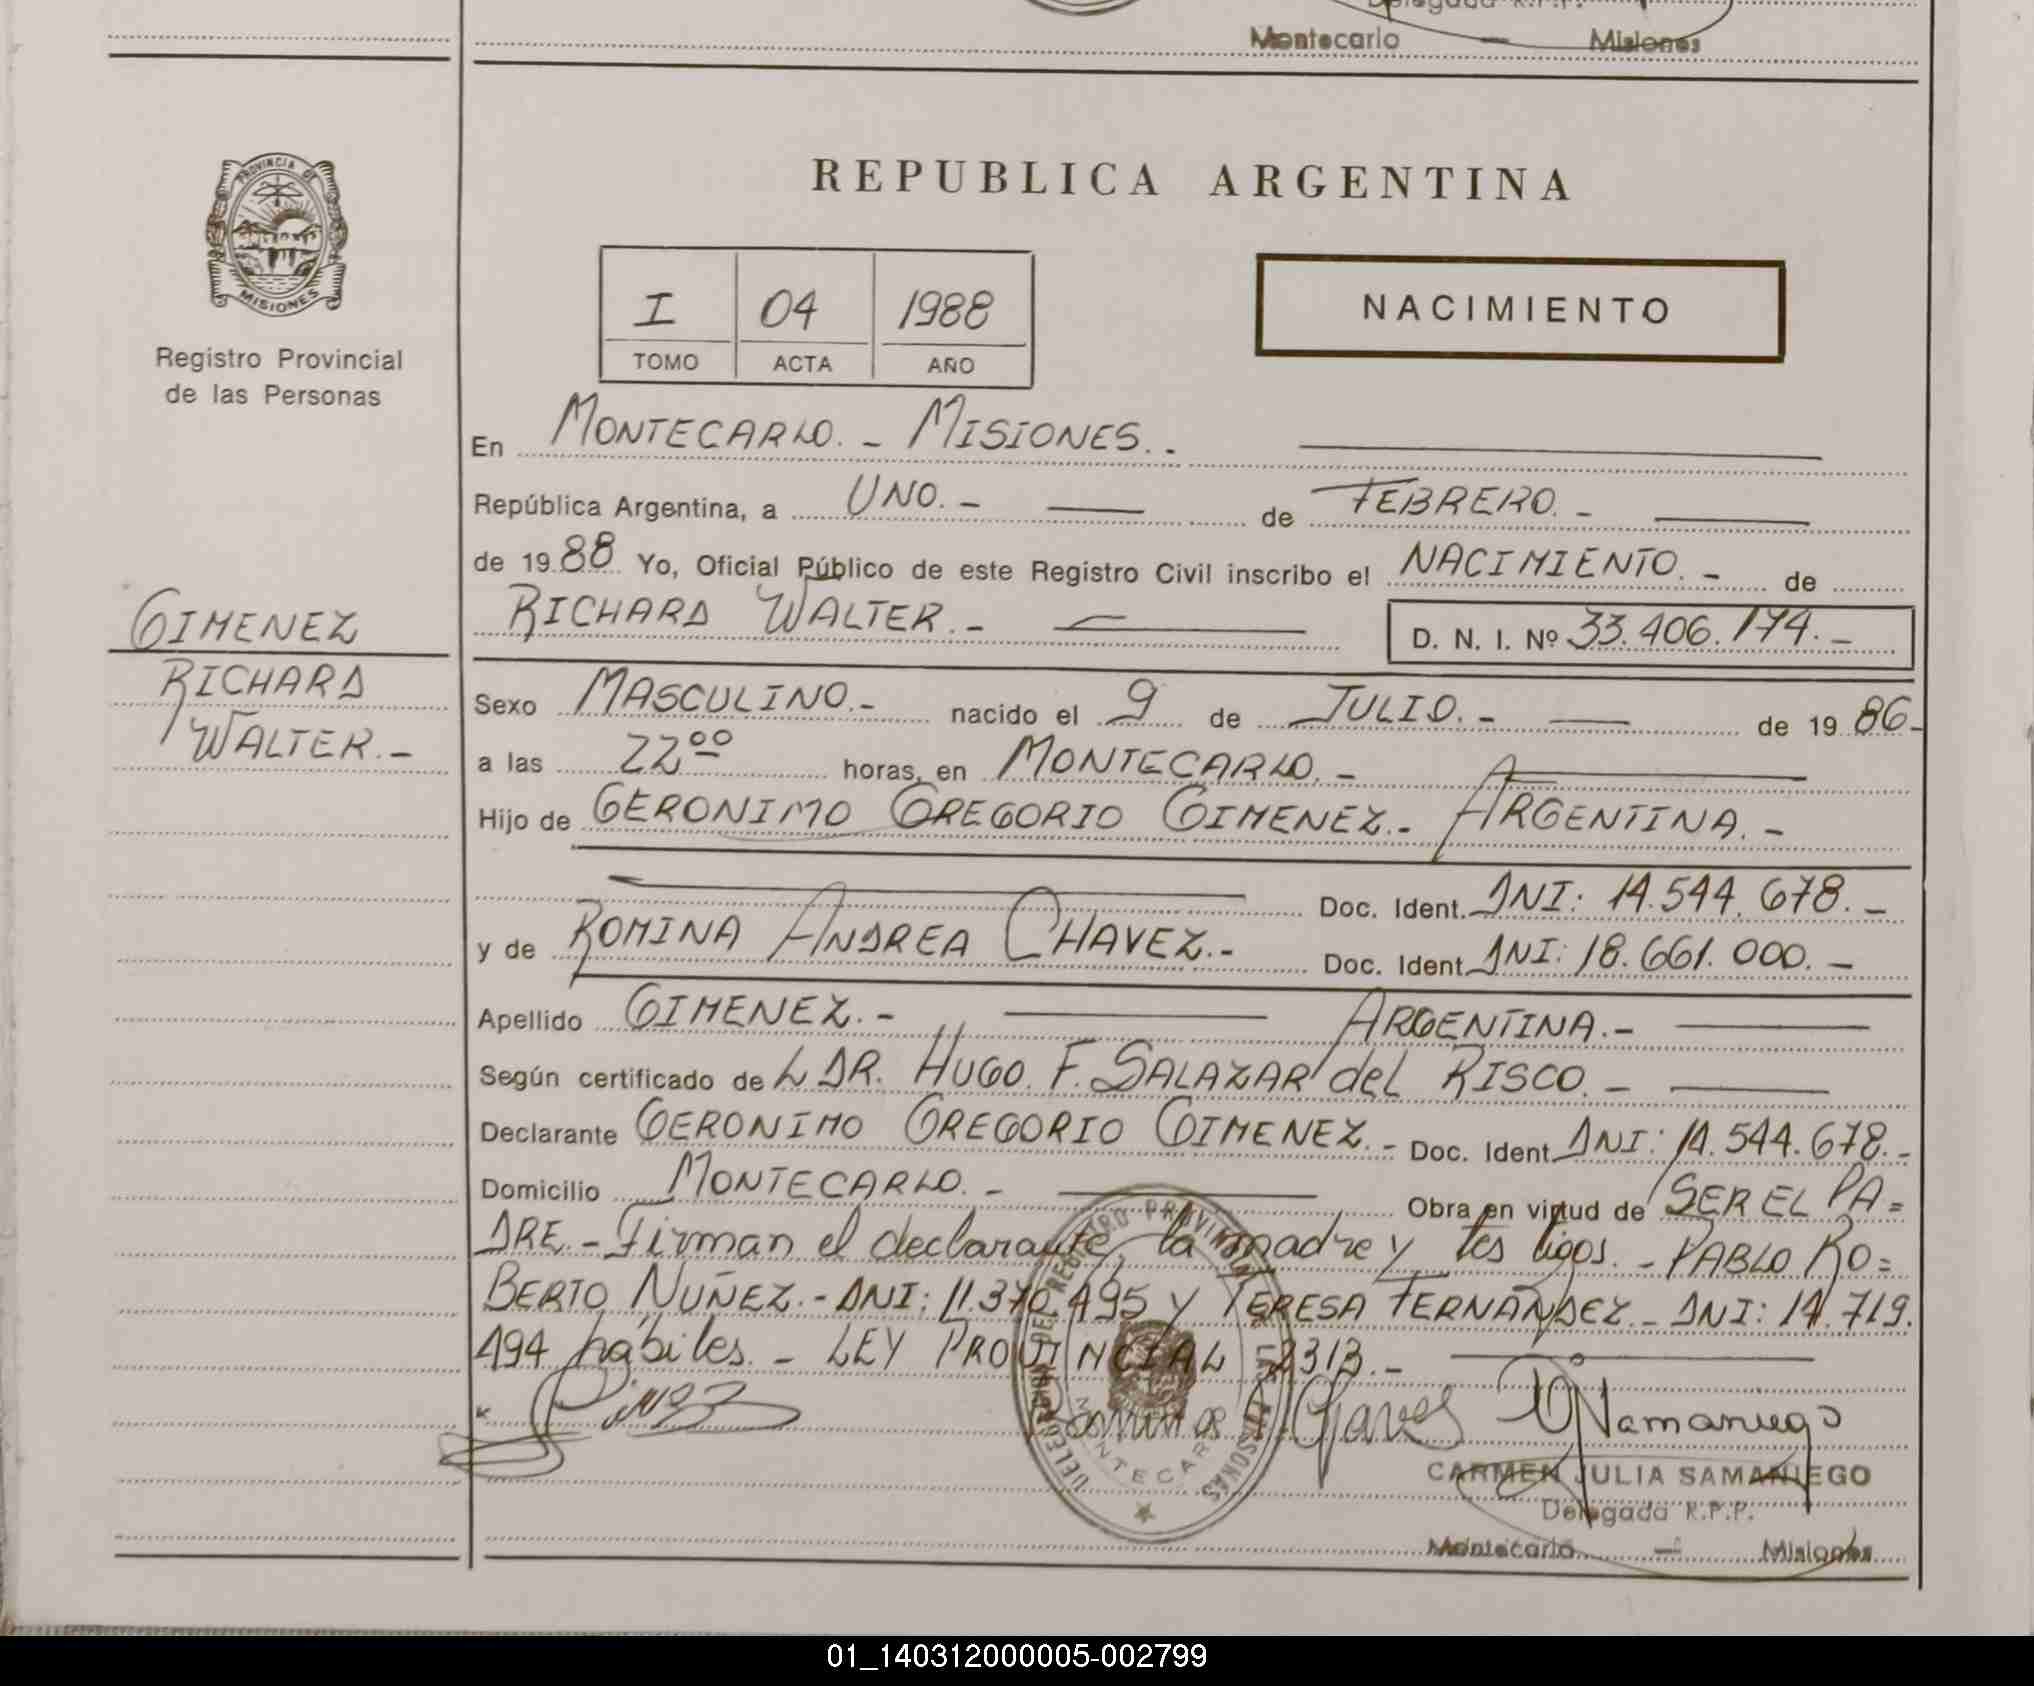 Delegada R.P.P.
Montecarlo — Misiones
PROVINCIA DE
MISIONES
Registro Provincial
de las Personas
REPUBLICA ARGENTINA
I 04 1988
TOMO ACTA AÑO
NACIMIENTO
En MONTECARLO. - MISIONES. -
República Argentina, a UNO. - de FEBRERO. -
de 1988 Yo, Oficial Público de este Registro Civil inscribo el NACIMIENTO. - de
RICHARD WALTER. - D. N. I. Nº 33.406.174. -
GIMENEZ
RICHARD
WALTER. -
Sexo MASCULINO. - nacido el 9 de JULIO. - de 1986-
a las 22⁰⁰ horas, en MONTECARLO. -
Hijo de GERONIMO GREGORIO GIMENEZ. - ARGENTINA. -
Doc. Ident. DNI: 14.544.678. -
y de ROMINA ANDREA CHAVEZ. - Doc. Ident. DNI: 18.661.000. -
Apellido GIMENEZ. - ARGENTINA. -
Según certificado de L DR. HUGO. F. SALAZAR del RISCO. -
Declarante GERONIMO GREGORIO GIMENEZ. - Doc. Ident. DNI: 14.544.678. -
Domicilio MONTECARLO. - Obra en virtud de SER EL PA=
DRE. - Firman el declarante, la madre y tes tigos. - PABLO RO=
BERTO NUÑEZ. - DNI: 11.370.495 y TERESA FERNÁNDEZ. - DNI: 14.719.
494 hábiles. - LEY PROVINCIAL 2313. -
DELEGACION DEL REGISTRO PROVINCIAL DE LAS PERSONAS
MONTECARLO
CARMEN JULIA SAMANIEGO
Delegada R.P.P.
Montecarlo — Misiones
01_140312000005-002799